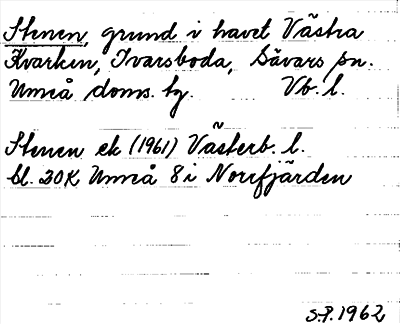 Stenen, grund i havet Västra
Kvarken, Ivarsboda, Sävars sn.
Umeå doms. tg. Vb. l.
Stenen ek (1961) Västerb. l.
bl. 20K Umeå 8 i Norrfjärden
S.P. 1962